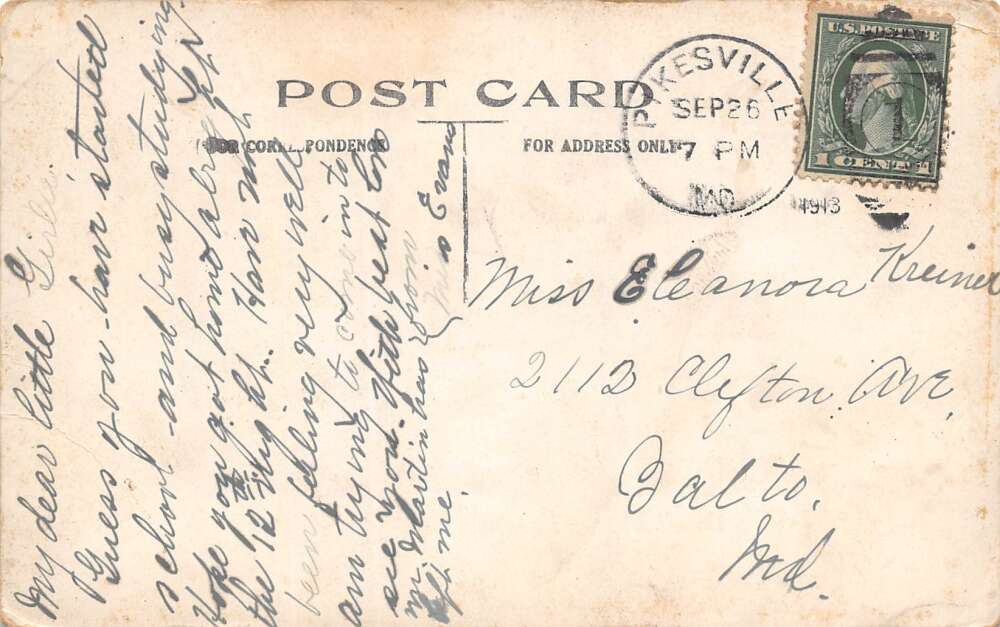 POST CARD
FOR CORRESPONDENCE
FOR ADDRESS ONLY
PIKESVILLE
SEP 26
7 PM
MD.
1913
U.S. POSTAGE
1 CENT 1
Miss Eleanora Kreiner
2112 Clifton Ave,
Balto.
Md.
My dear little Girlie
Guess you have started
school and busy studying
Hope you got home alright Sep
the 12th night. Have not
been feeling very well
am trying to come in to
see you. With great love
Mr Martin has
left me.
from
Miss Evans